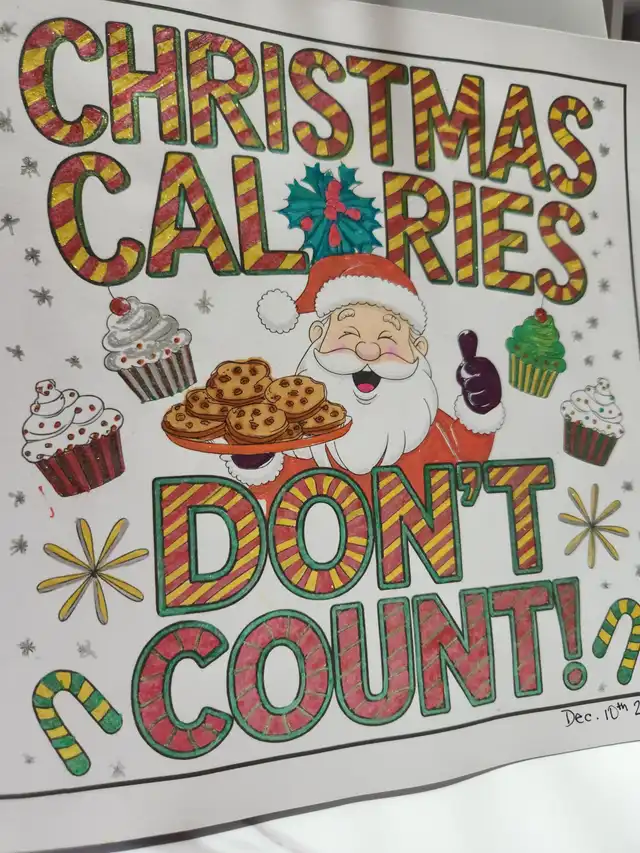 CHRISTMAS
CALORIES
DON'T
COUNT!
Dec. 10th